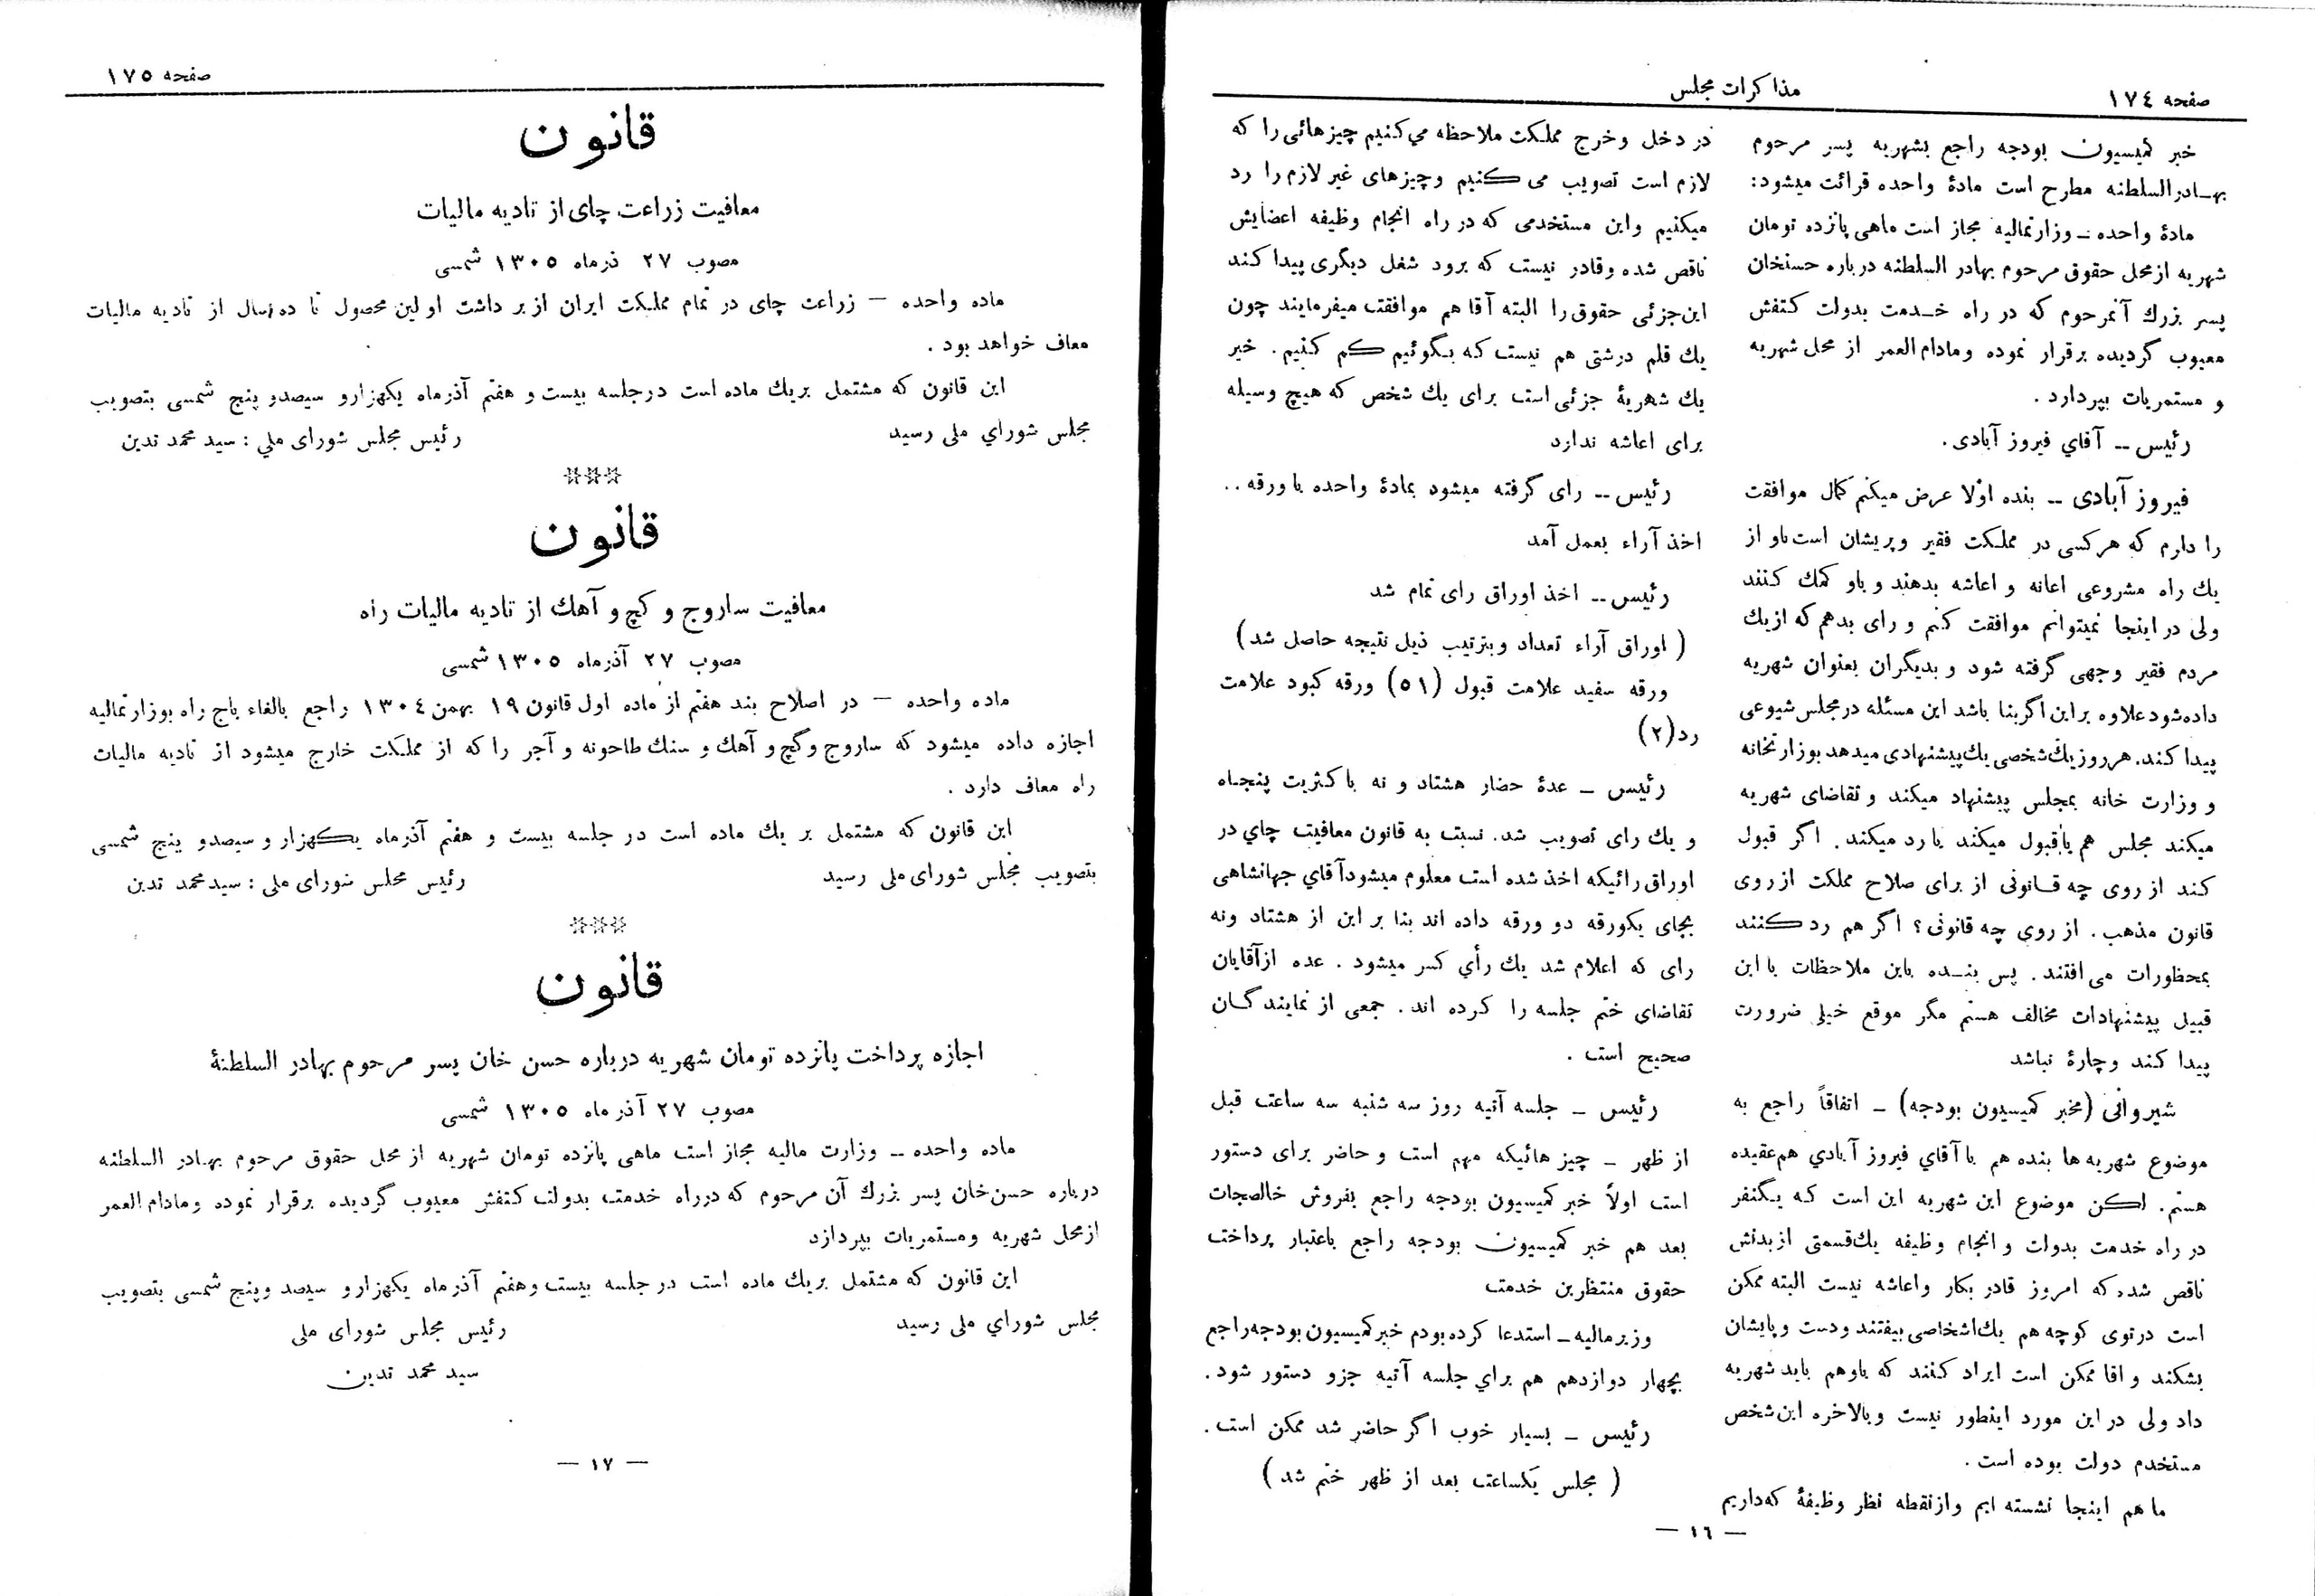 صفحه ١٧٤
مذاکرات مجلس
خبر کمیسیون بودجه راجع بشهریه پسر مرحوم
بهادرالسلطنه مطرح است مادۀ واحده قرائت میشود:
مادۀ واحده ــ وزارتمالیه مجاز است ماهی پانزده تومان
شهریه ازمحل حقوق مرحوم بهادر السلطنه درباره حسنخان
پسر بزرك آنمرحوم که در راه خـدمت بدولت کتفش
معیوب گردیده برقرار نموده ومادام العمر از محل شهریه
و مستمریات بپردارد .
رئیس ــ آقاي فیروز آبادی .
فیروز آبادی ــ بنده اولا عرض میکنم کمال موافقت
را دارم که هرکسی در مملکت فقیر وپریشان است باو از
یك راه مشروعی اعانه و اعاشه بدهند و باو کمك کنند
ولی در اینجا نمیتوانم موافقت کنم و رای بدهم که ازیك
مردم فقیر وجهی گرفته شود و بدیگران بعنوان شهریه
داده شود علاوه براین اگربنا باشد این مسئله درمجلس شیوعی
پیدا کند. هرروز یك شخصی یك پیشنهادی میدهد بوزارتخانه
و وزارت خانه بمجلس پیشنهاد میکند و تقاضای شهریه
میکند مجلس هم یاقبول میکند یا رد میکند. اگر قبول
کند از روی چه قـانونی از برای صلاح مملکت ازروی
قانون مذهب . از روی چه قانونی؟ اگر هم رد کنند
بمحظورات می افتند . پس بنـده باین ملاحظات با این
قبیل پیشنهادات مخالف هستم مگر موقع خیلی ضرورت
پیدا کند وچارۀ نباشد
شیروانی (مخبر کمیسیون بودجه) ــ اتفاقاً راجع به
موضوع شهریه ها بنده هم با آقاي فیروز آبادي هم عقیده
هستم. لکن موضوع این شهریه این است که یکنفر
در راه خدمت بدولت و انجام وظیفه یك قسمتی ازبدنش
ناقص شده که امروز قادر بکار واعاشه نیست البته ممکن
است درتوی کوچه هم یك اشخاصی بیفتند ودست وپایشان
بشکند و اقا ممکن است ایراد کنند که باوهم باید شهریه
داد ولی در این مورد اینطور نیست وبالاخره این شخص
مستخدم دولت بوده است .
ما هم اینجا نشسته ایم وازنقطه نظر وظیفۀ که داریم
در دخل وخرج مملکت ملاحظه می کنیم چیزهائی را که
لازم است تصویب می کنیم وچیزهای غیر لازم را رد
میکنیم واین مستخدمی که در راه انجام وظیفه اعضایش
ناقص شده وقادر نیست که برود شغل دیگری پیدا کند
این جزئی حقوق را البته آقا هم موافقت میفرمایند چون
یك قلم درشتی هم نیست که بگوئیم کم کنیم . خیر
یك شهریۀ جزئی است برای یك شخص که هیچ وسیله
برای اعاشه ندارد
رئیس ــ رای گرفته میشود بمادۀ واحده با ورقه ..
اخذ آراء بعمل آمد
رئیس ــ اخذ اوراق رای تمام شد
( اوراق آراء تعداد وبترتیب ذیل نتیجه حاصل شد )
ورقه سفید علامت قبول (٥١) ورقه کبود علامت
رد(٢)
رئیس ــ عدۀ حضار هشتاد و نه با کثریت پنجـاه
و یك رای تصویب شد. نسبت به قانون معافیت چاي در
اوراق رائیکه اخذ شده است معلوم میشودآقاي جهانشاهی
بجای یکورقه دو ورقه داده اند بنا بر این از هشتاد ونه
رای که اعلام شد یك رأي کسر میشود . عده ازآقایان
تقاضای ختم جلسه را کرده اند . جمعی از نمایندگـان
صحیح است .
رئیس ــ جلسه آتیه روز سه شنبه سه ساعت قبل
از ظهر ــ چیز هائیکه مهم است و حاضر برای دستور
است اولاً خبر کمیسیون بودجه راجع بفروش خالصجات
بعد هم خبر کمیسیون بودجه راجع باعتبار پرداخت
حقوق منتظرین خدمت
وزیرمالیه ــ استدعا کرده بودم خبرکمیسیون بودجه راجع
بچهار دوازدهم هم براي جلسه آتیه جزو دستور شود.
رئیس ــ بسیار خوب اگر حاضر شد ممکن است .
( مجلس یکساعت بعد از ظهر ختم شد )
— ١٦ —
صفحه ١٧٥
قانون
معافیت زراعت چای از تادیه مالیات
مصوب ٢٧ ذرماه ١٣٠٥ شمسی
ماده واحده — زراعت چای در تمام مملکت ایران از بر داشت اولین محصول تا ده سال از تادیه مالیات
معاف خواهد بود .
این قانون که مشتمل بریك ماده است درجلسه بیست و هفتم آذرماه یکهزارو سیصدو پنج شمسی بتصویب
مجلس شوراي ملی رسید
رئیس مجلس شورای ملي : سید محمد تدین
***
قانون
معافیت ساروج و کچ و آهك از تادیه مالیات راه
مصوب ٢٧ آذرماه ١٣٠٥ شمسی
ماده واحده — در اصلاح بند هفتم از ماده اول قانون ١٩ بهمن ١٣٠٤ راجع بالغاء باج راه بوزارتمالیه
اجازه داده میشود که ساروج وگچ و آهك و سنك طاحونه و آجر را که از مملکت خارج میشود از تادیه مالیات
راه معاف دارد .
این قانون که مشتمل بر یك ماده است در جلسه بیست و هفتم آذرماه یکهزار و سیصدو پنج شمسی
بتصویب مجلس شورای ملی رسید
رئیس مجلس شورای ملی : سید محمد تدین
***
قانون
اجازه پرداخت پانزده تومان شهریه درباره حسن خان پسر مرحوم بهادر السلطنۀ
مصوب ٢٧ آذر ماه ١٣٠٥ شمسی
ماده واحده ــ وزارت مالیه مجاز است ماهی پانزده تومان شهریه از محل حقوق مرحوم بهـادر السلطنه
درباره حسن خان پسر بزرك آن مرحوم که درراه خدمت بدولت کتفش معیوب گردیده برقرار نموده ومادام العمر
ازمحل شهریه ومستمریات بپردازد
این قانون که مشتمل بریك ماده است در جلسه بیست وهفتم آذرماه یکهزارو سیصد وپنج شمسی بتصویب
مجلس شوراي ملی رسید
رئیس مجلس شورای ملی
سید محمد تدین
— ١٧ —